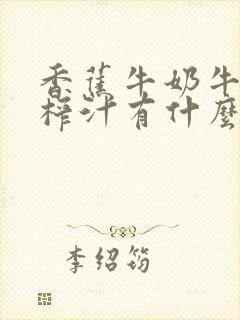 香蕉牛奶牛
榨汁有什麼
李绍筠